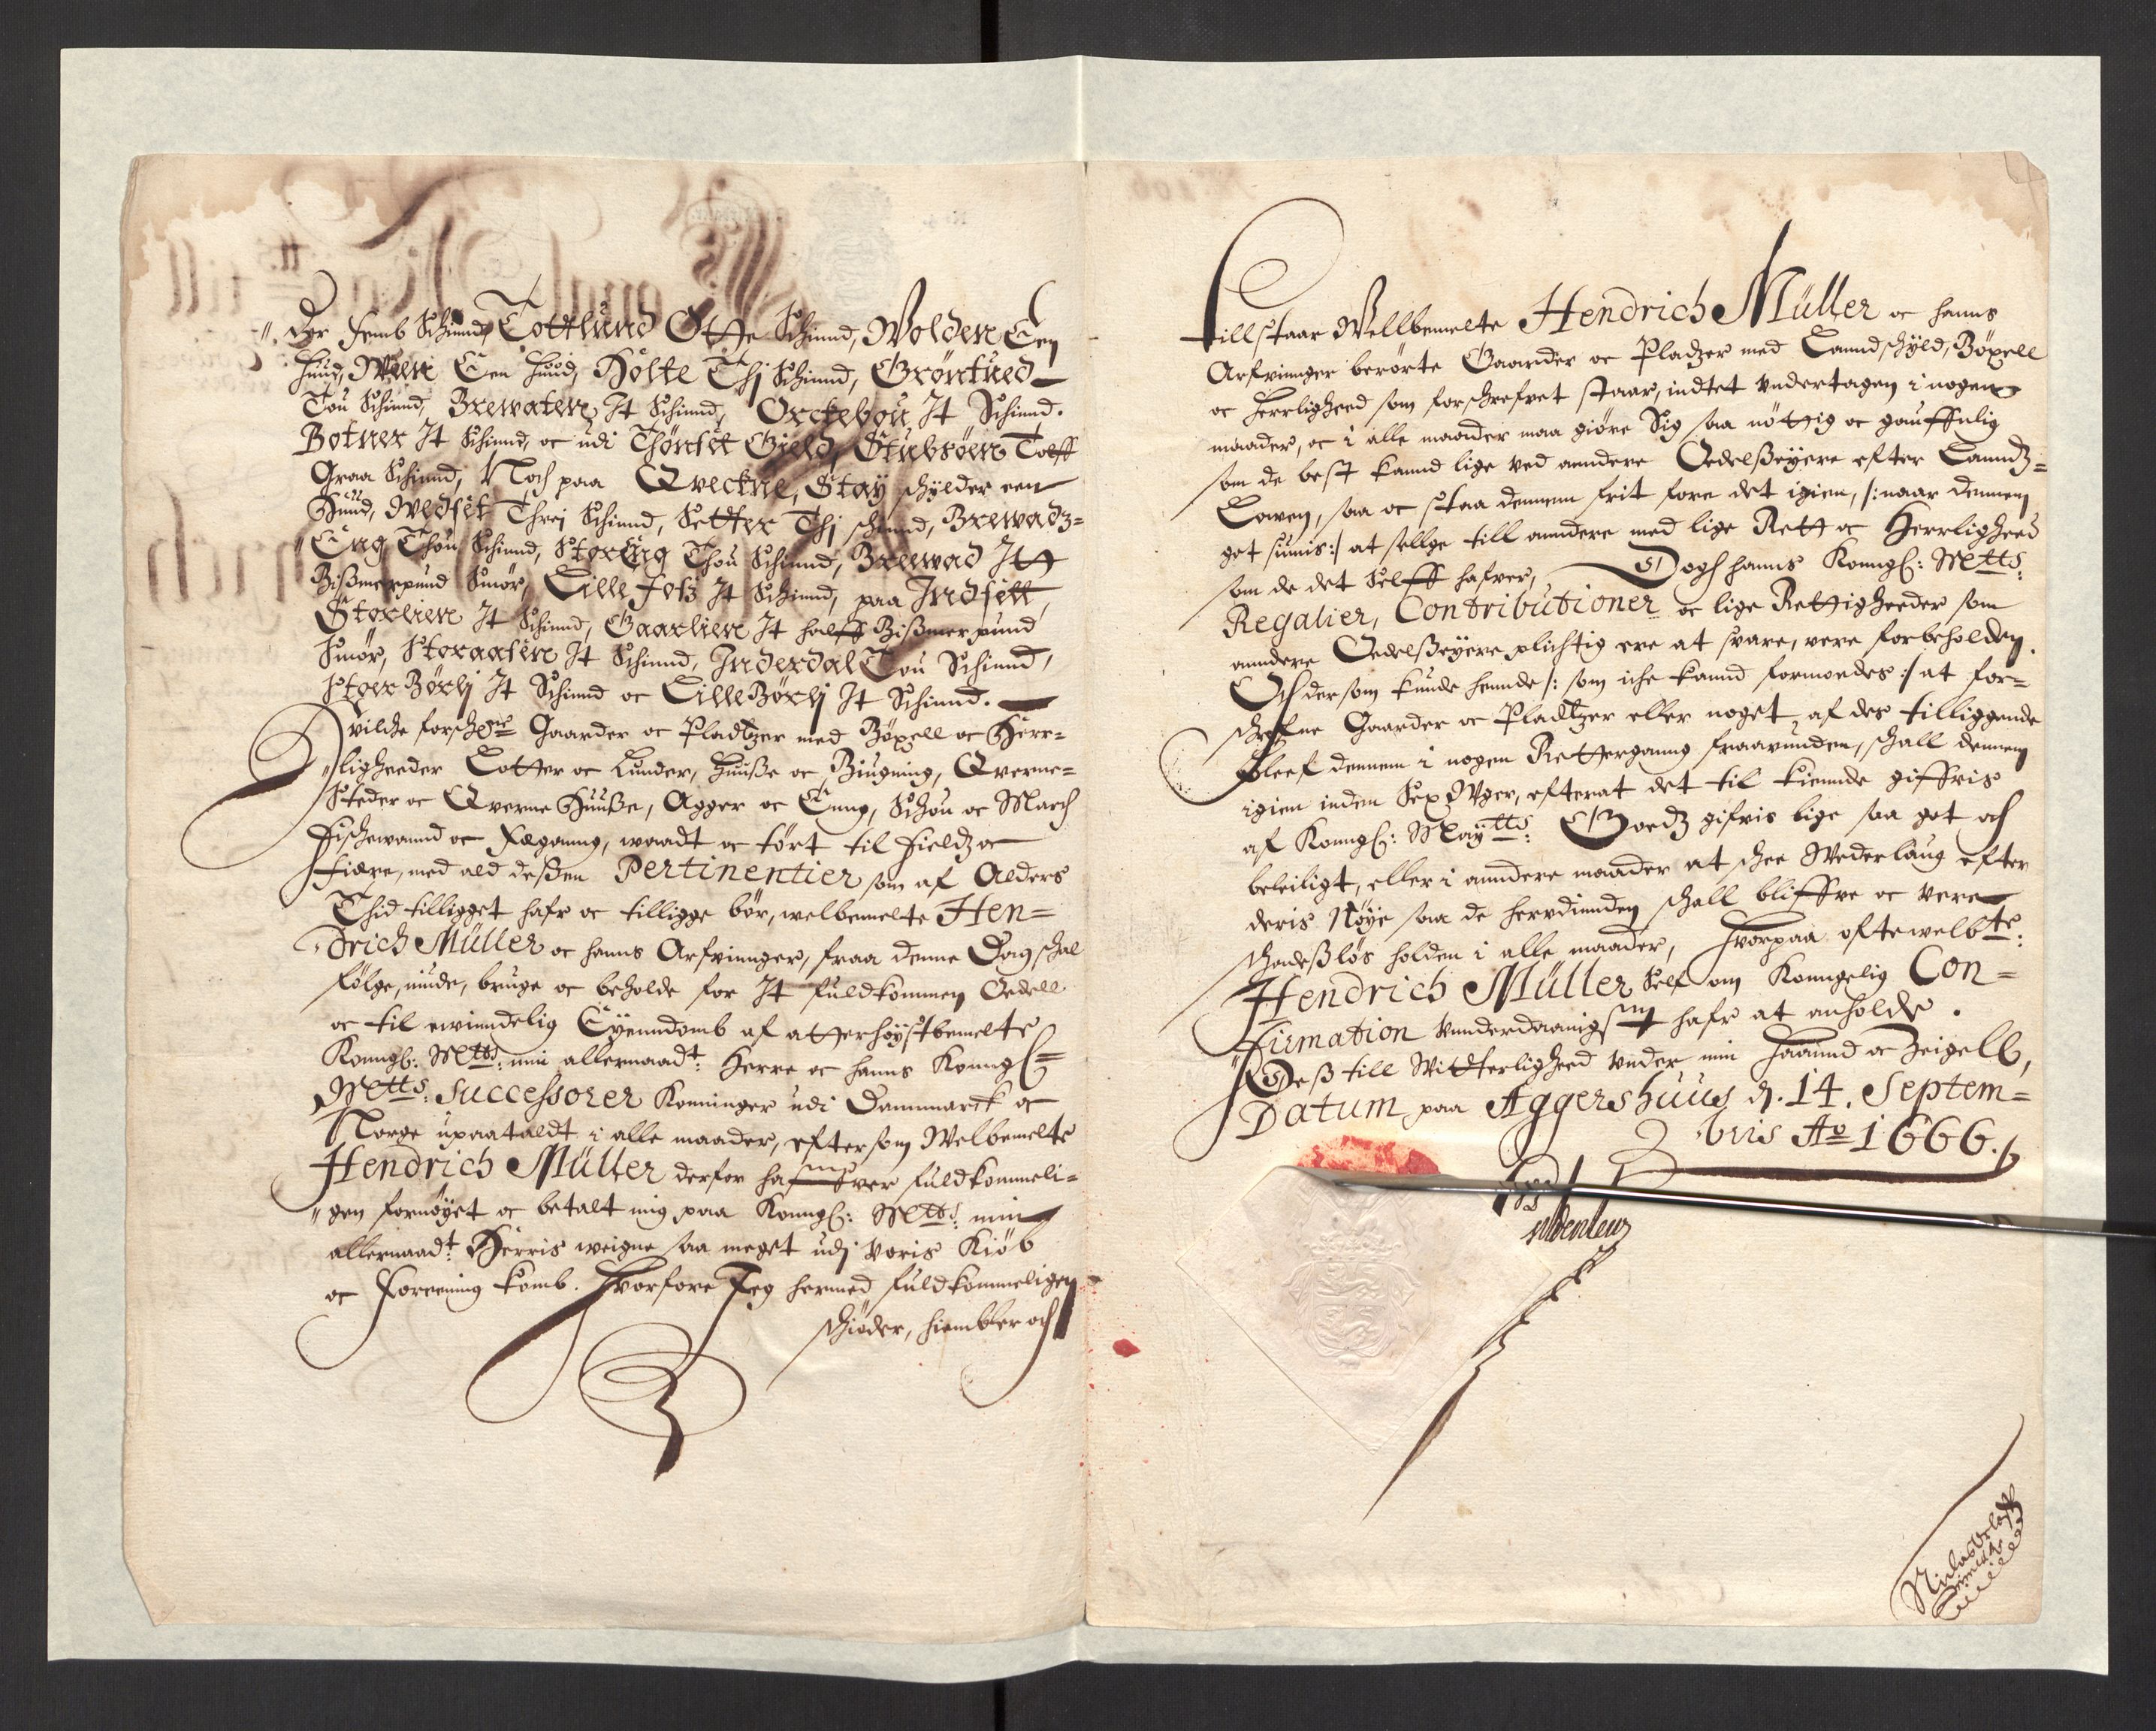 Der femb Schind, Tottlund Otte Schinnd, Wolden Een
Huud, Ween Een Huud, Holte Thj Schinnd, Gröntued
Tou Schinnd, Brewaten It Schinnd, Orckebou It Schinnd.
Botner It Schinnd, oc udi Thönset Gield, Stubsöen Tolff
Graa Schinnd, Noch paa Qveckne, Stay schylder een
Huud, Wedset Threj Schinnd, Setter Thj schinnd, Brewadz=
Eng Thou Schinnd, StorEng Thou Schinnd, Brewad It
Bißmerpund Smör, Lille Foss It Schinnd, paa Indsett
Storlien It Schinnd, Gaarlien It halff Bißmerpund
Smör, Storaasen It Schinnd, Inderdal Tou Schinnd,
Stoer Börlj It Schinnd oc Lille Börlj It Schinnd.
Hvilche forschrne Gaarder oc Pladtzer med Böxell oc Herr=
ligheeder Lotter oc Lunder, Huuße oc Biugning, Qverne=
Steder oc Qverne Huuße, Agger oc Enng, Schou oc March
Fischewannd oc Fæganng, waadt oc tört til Fieldz oc
Fiære, med ald deßen Pertinentier som af Alders
Thid tilligget hafr oc tilligge bör, welbemelte Hen=
drich Müller oc hanns Arfvinnger, fraa denne Dag schal
fölge, niude, bruge oc beholde for It fuldkommen Oedell
oc til ewinndelig Eyenndomb af atterhöystbemelte
Konngl: Metts: min allernaadt: Herre oc hanns Konngl=
Metts: Successorer Konninger udi Dannmarck oc
Norge upaataldt i alle maader, eftersom Welbemelte
Hendrich Müller derfor hafver fuldkommeli=
gen fornöyet oc betalt mig paa Konngl: Metts: min
allernaadt: Herris weigne saa meget udj voris Kiöb
oc Foreening komb. Hvorfore Jeg hermed fuldkommeligen
schiöder, hiembler och
tillstaar Wellbemelte Hendrich Müller oc hanns
Arfvinnger berörte Gaarder oc Pladzer med Lanndschyld, Böxell
oc Herrligheed som forschrefvet staar, indtet undertagen i nogen
maader, oc i alle maader maa giöre Sig saa nöttig oc gauffnlig
som de best kannd lige ved anndere Oedelßeyere efter Lanndz=
Lowen, saa oc staa dennem frit fore det igien, /: naar dennem
got siunis :/ at sellge till anndere med lige Rett oc Herrligheed
som de det Selff hafver, Dogh hanns Konngl: Metts:
Regalier, Contributioner oc lige Rettigheeder som
anndere Oedelßeyere plichtig ere at svare, vere forbeholden.
Och dersom kunde hennde /: som iche kannd formoedes :/ at for=
schrefne Gaarder oc Pladtzer eller noget af des tilliggende
bleef dennem i nogen Rettergang fraavunden, schall dennem
igien inden Sex Uger, efterat det til kiennde giffvis
af Konngl: Maytts: Goedz gifvis lige saa got och
beleiligt, eller i anndere maader at schee Wederlaug efter
deris Nöye saa de herudinden schall bliffve oc vere
schadeßlös holden i alle maader, hvorpaa ofte welbte:
Hendrich Müller Self om Konngelig Con=
firmation underdaanigst hafr at anholde.
Deß till Witterligheed under min Haannd oc Zeigell,
Datum paa Aggershuus d. 14. Septem=
bris Ao 1666.